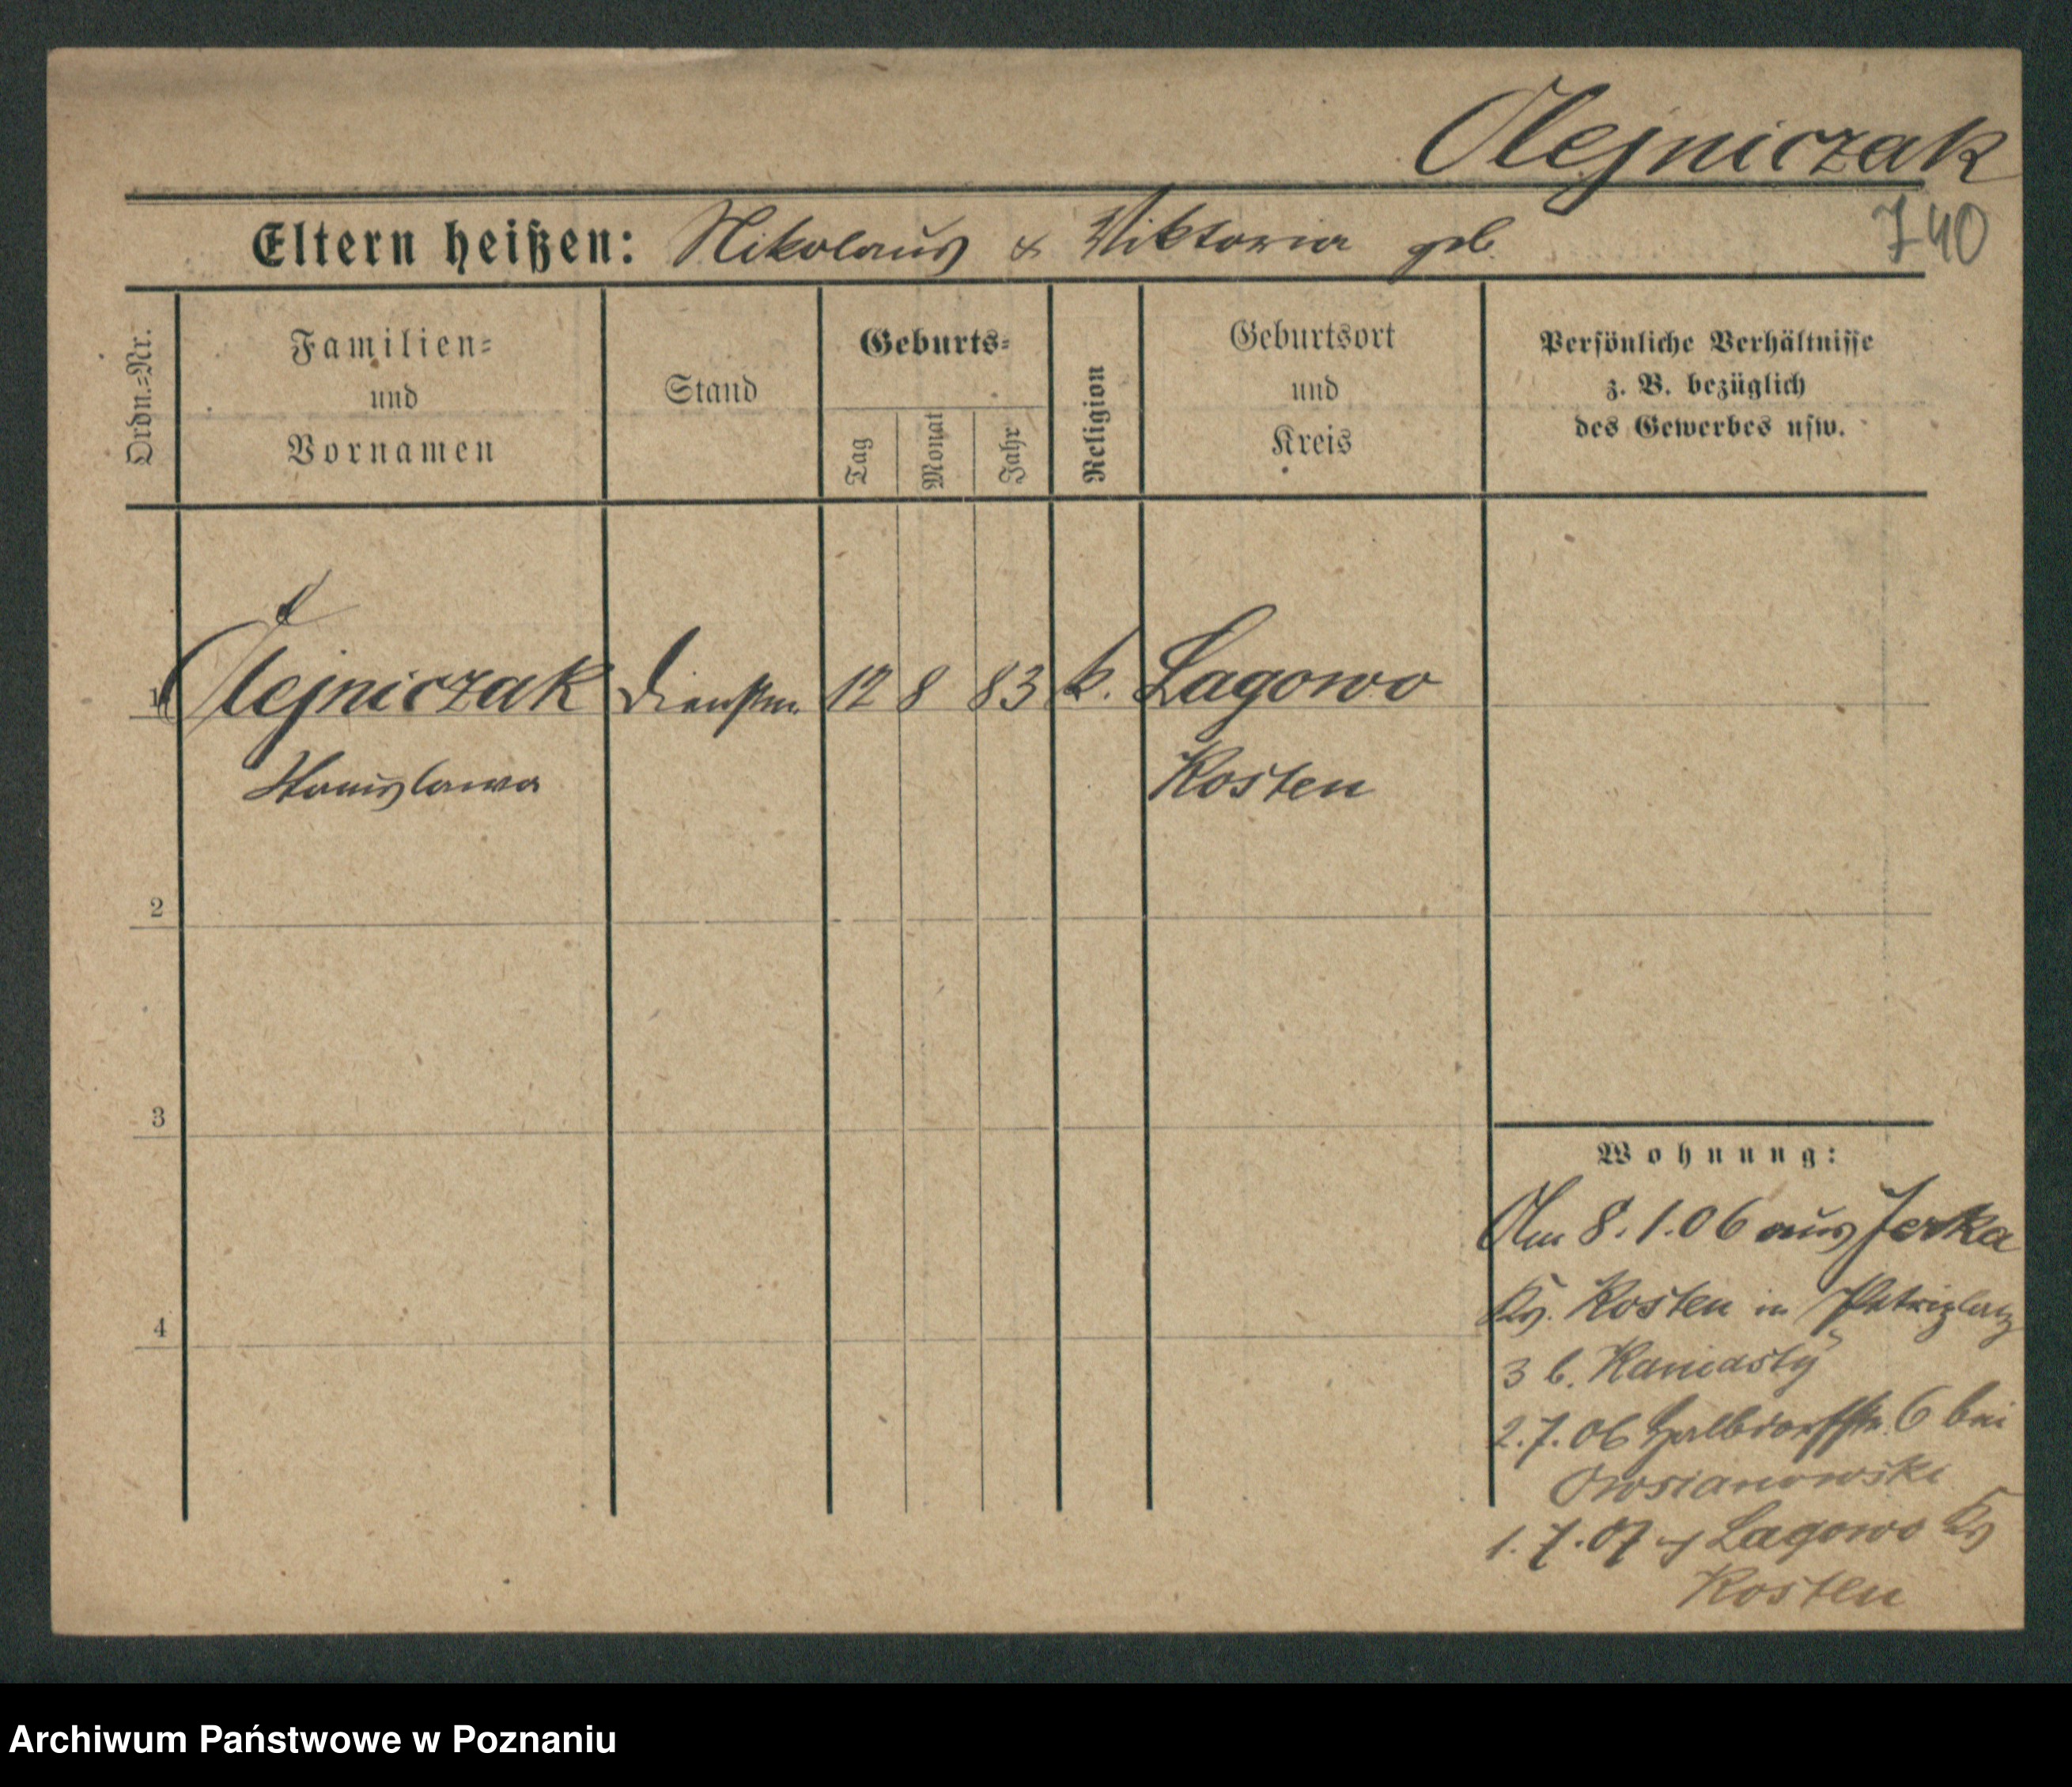 Olejniczak
740
Eltern heißen: Nikolaus & Viktoria geb.
Ordn.=Nr.
Familien=
und
Vornamen
Stand
Geburts=
Tag
Monat
Jahr
Religion
Geburtsort
und
Kreis
Persönliche Verhältnisse
z. B. bezüglich
des Gewerbes usw.
1 Olejniczak Dienstm. 12 8 83 k. Lagowo
Stanislawa Kosten
2
3
4
Wohnung:
Am 8.1.06 aus Jerka
Krs. Kosten in Petriplatz
3 b. Kaniasty
2.7.06 Halbdorfstr. 6 bei
Owsianowski
1.7.07 Lagowo Krs
Kosten
Archiwum Państwowe w Poznaniu